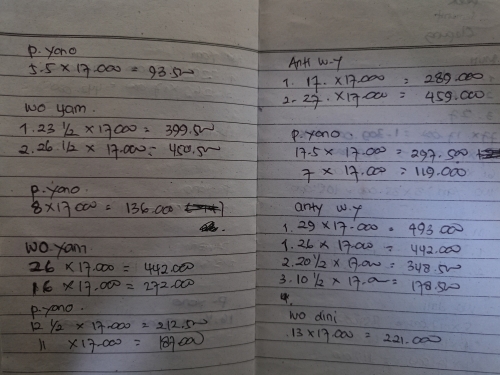 p. yono
5.5 x 17.000 = 93.500
wo yam.
1. 23 1/2 x 17.000 = 399.500
2. 26 1/2 x 17.000 = 450.500
p. yono.
8 x 17.000 = 136.000
WO yam.
26 x 17.000 = 442.000
16 x 17.000 = 272.000
p. yono
12 1/2 x 17.000 = 212.500
11 x 17.000 = 187.000
Anti w.y
1. 17. x 17.000 = 289.000
2. 27. x 17.000 = 459.000
p. yono
17.5 x 17.000 = 297.500
7 x 17.000 = 119.000
anty w.y
1. 29 x 17.000 = 493.000
1. 26 x 17.000 = 442.000
2. 20 1/2 x 17.000 = 348.500
3. 10 1/2 x 17.000 = 178.500
4.
wo dini
.13 x 17.000 = 221.000